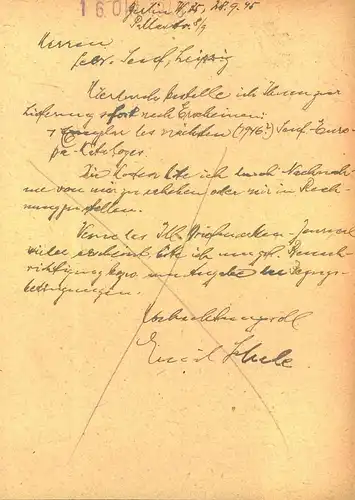 160
Berlin W 35, 28.9.45
Herren
Gebr. Senf, Leipzig
Hierdurch bestelle ich Ihnen zur
Lieferung sofort nach Erscheinen:
1 Exemplar des nächsten (1946?) Senf-Euro-
pa-Kataloges.
Die Kosten bitte ich durch Nachnah-
me von mir zu erheben oder mir in Rech-
nung zu stellen.
Wenn das Ill. Briefmarken-Journal
wieder erscheint, bitte ich um gefl. Benach-
richtigung bezw. um Angabe der Bezugs-
bedingungen.
Hochachtungsvoll
Emil